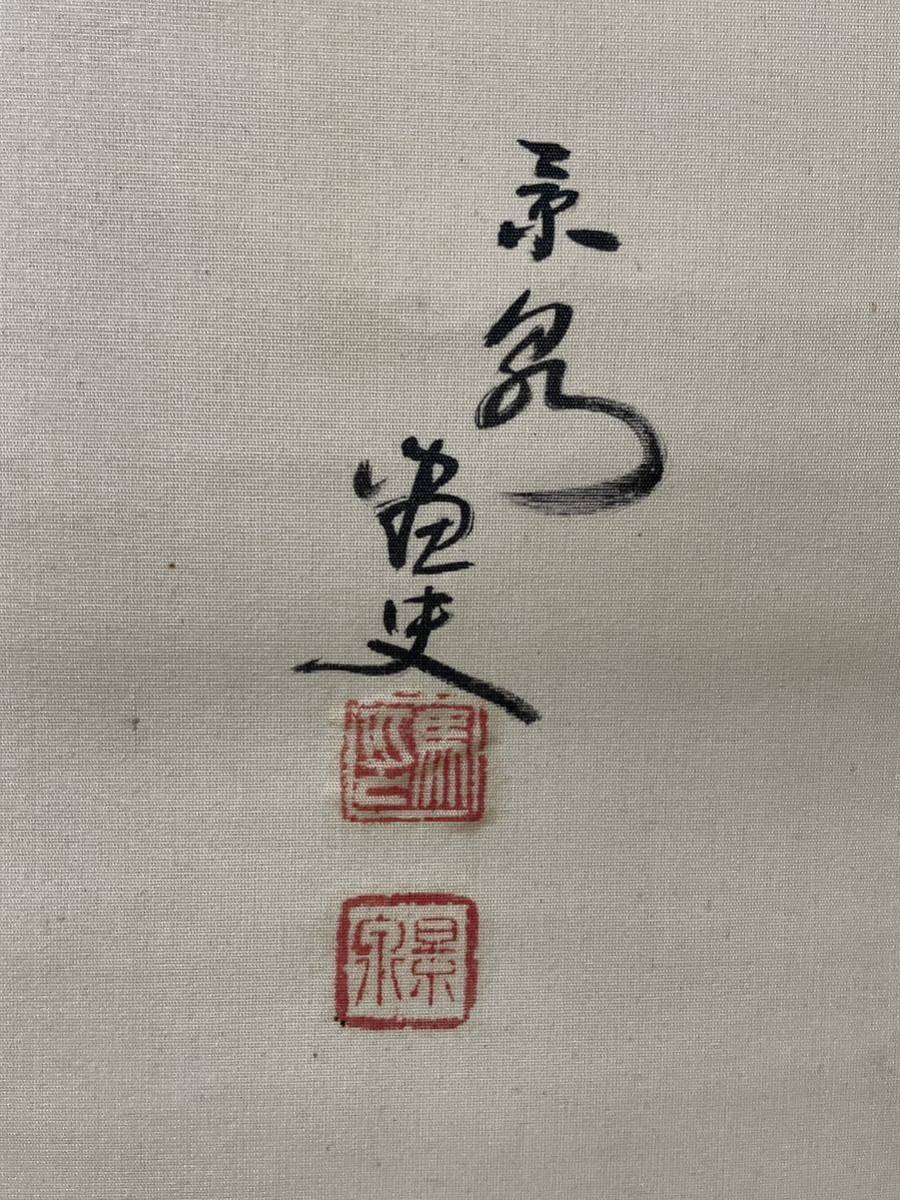 景泉
畫史
景泉